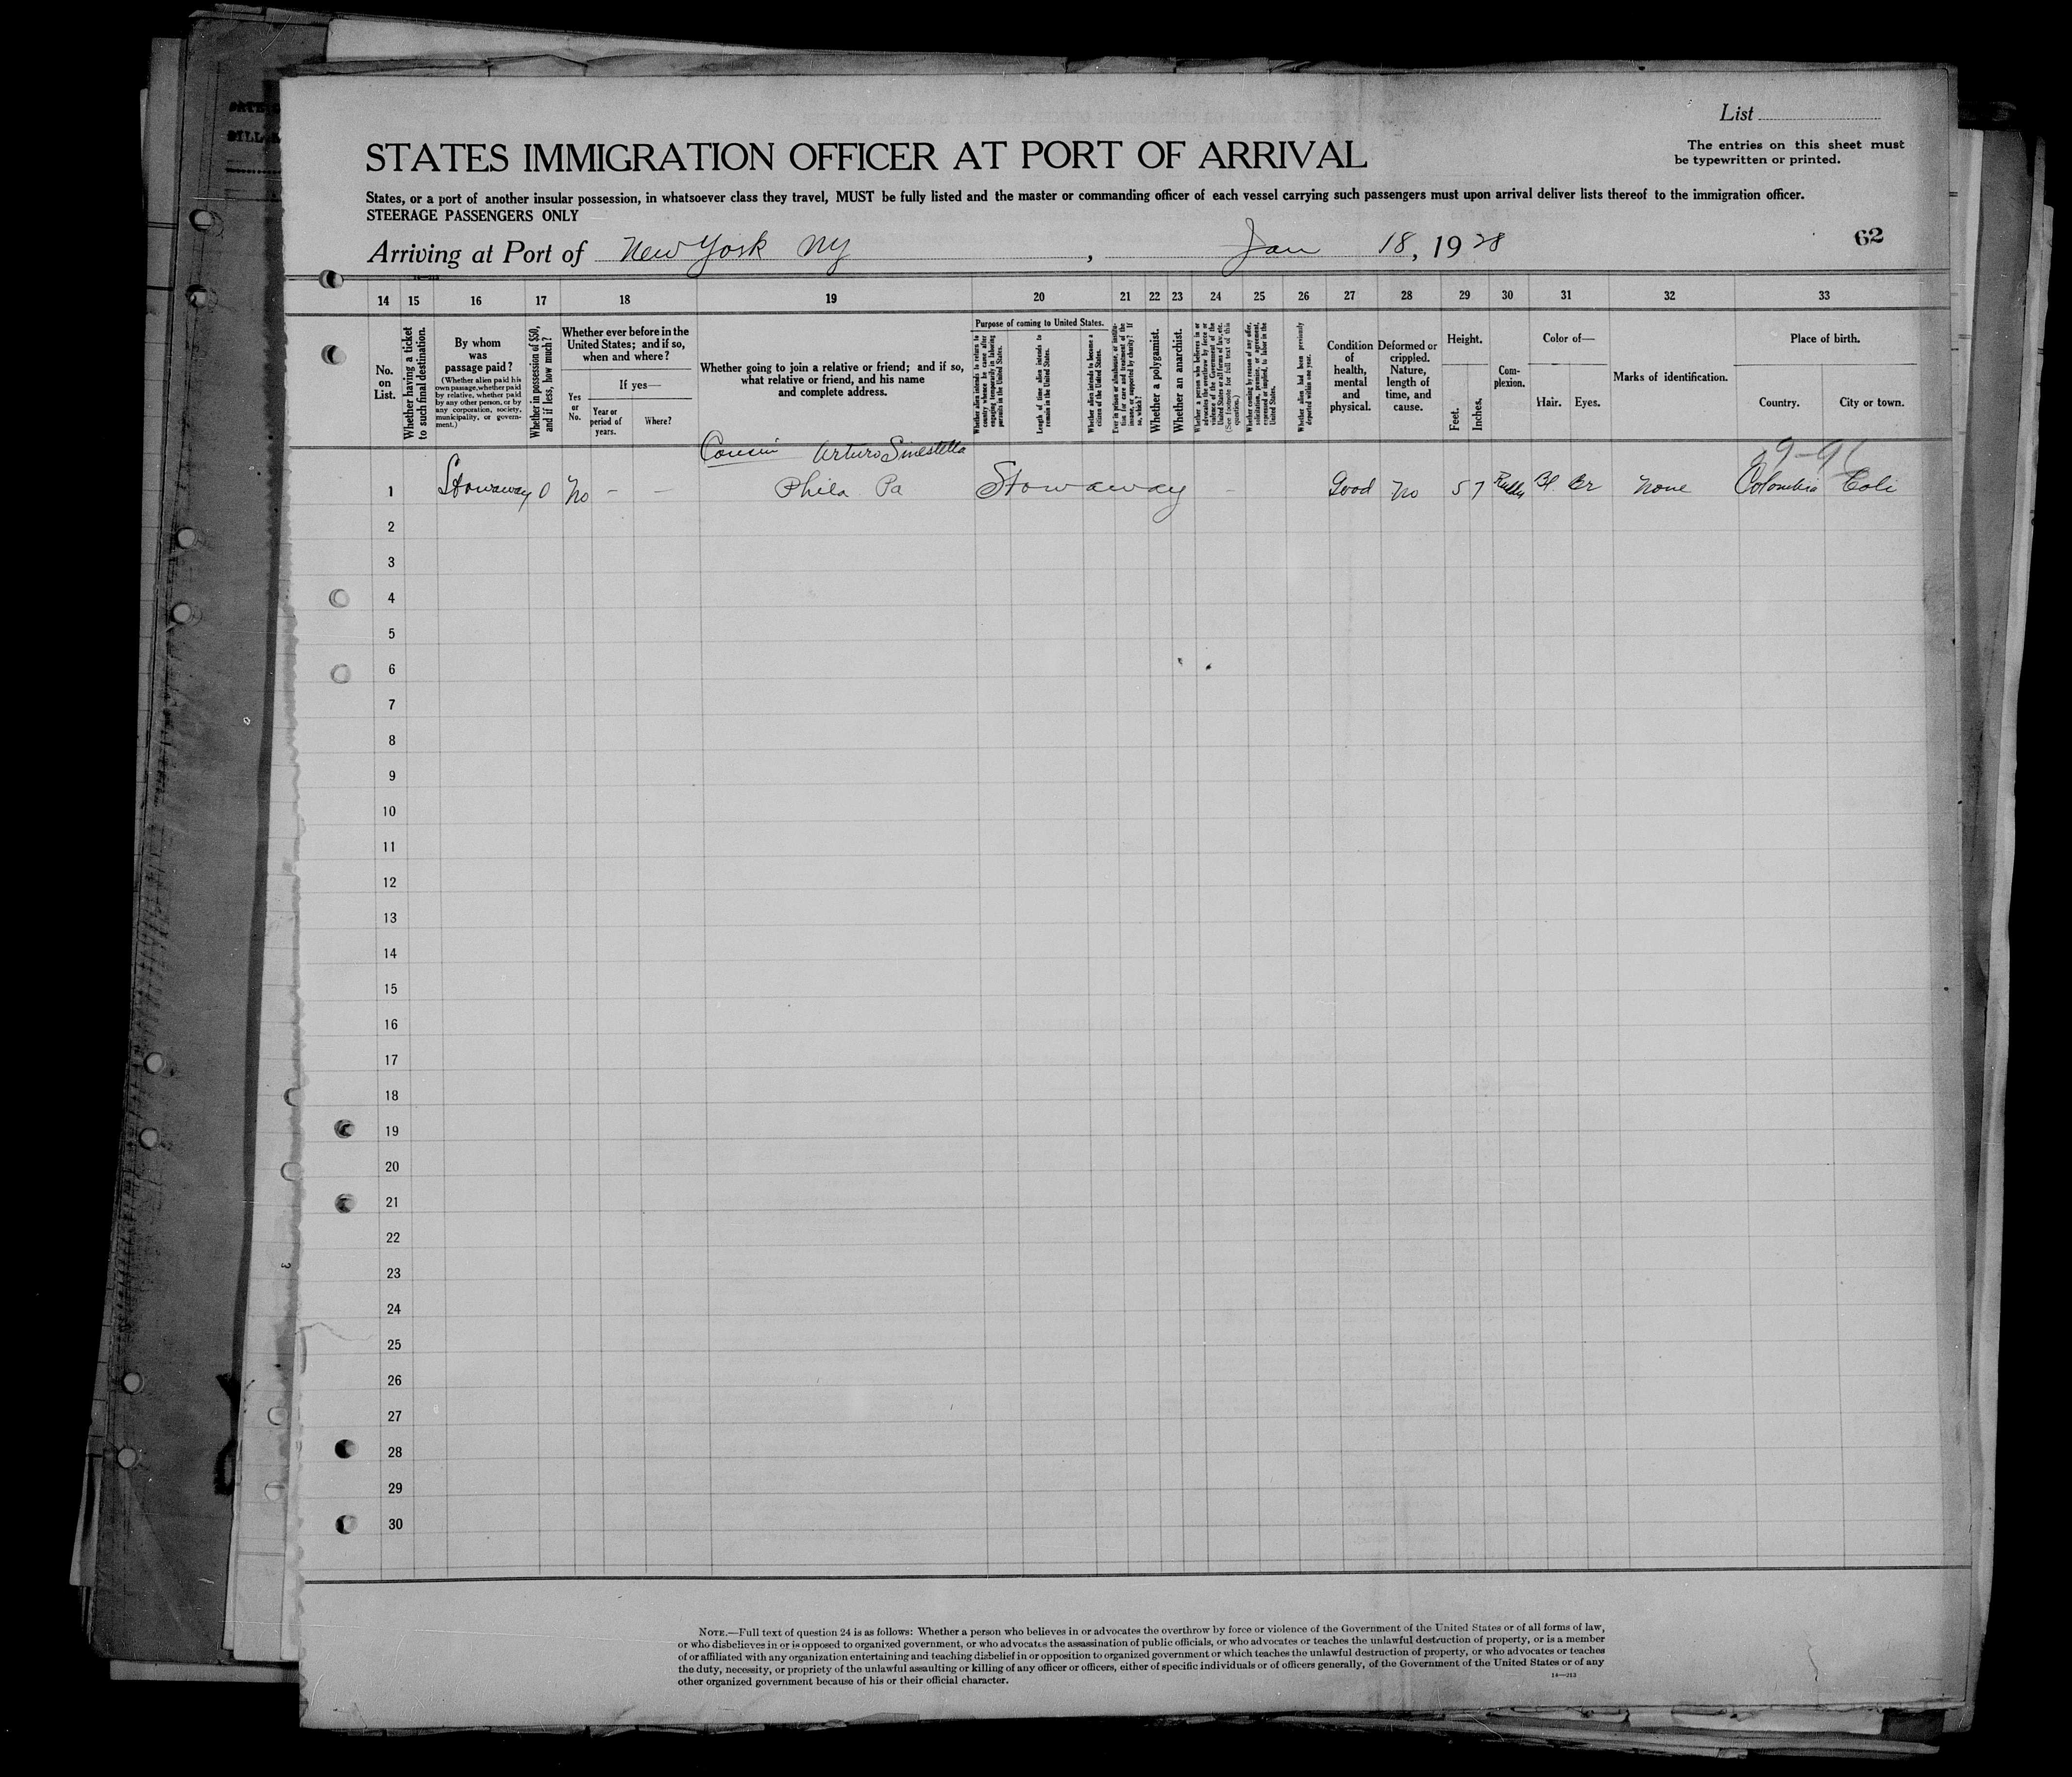 List
The entries on this sheet must
be typewritten or printed.
STATES IMMIGRATION OFFICER AT PORT OF ARRIVAL
States, or a port of another insular possession, in whatsoever class they travel, MUST be fully listed and the master or commanding officer of each vessel carrying such passengers must upon arrival deliver lists thereof to the immigration officer.
STEERAGE PASSENGERS ONLY
62
Arriving at Port of New York NY, Jan 18, 1928
14 15 16 17 18 19 20 21 22 23 24 25 26 27 28 29 30 31 32 33
No. on List.
Whether having a ticket to such final destination.
By whom was passage paid?
(Whether alien paid his own passage, whether paid by relative, whether paid by any other person, or by any corporation, society, municipality, or government.)
Whether in possession of $50, and if less, how much?
Whether ever before in the United States; and if so, when and where?
Yes or No.
If yes—
Year or period of years.
Where?
Whether going to join a relative or friend; and if so, what relative or friend, and his name and complete address.
Purpose of coming to United States.
Whether alien intends to return to country whence he came after engaging temporarily in laboring pursuits in the United States.
Length of time alien intends to remain in the United States.
Whether alien intends to become a citizen of the United States.
Ever in prison or almshouse, or institution for care and treatment of the insane, or supported by charity? If so, which?
Whether a polygamist.
Whether an anarchist.
Whether a person who believes in or advocates the overthrow by force or violence of the Government of the United States or all forms of law, etc. (See footnote for full text of this question.)
Whether coming by reason of any offer, solicitation, promise, or agreement, expressed or implied, to labor in the United States.
Whether alien had been previously deported within one year.
Condition of health, mental and physical.
Deformed or crippled. Nature, length of time, and cause.
Height.
Feet.
Inches.
Complexion.
Color of—
Hair.
Eyes.
Marks of identification.
Place of birth.
Country.
City or town.
Cousin Arturo Sinestella
1 Stowaway 0 No - - Phila Pa Stowaway - Good No 5 7 Ruddy Bl Br None Colombia Cali
2
3
4
5
6
7
8
9
10
11
12
13
14
15
16
17
18
19
20
21
22
23
24
25
26
27
28
29
30
NOTE.—Full text of question 24 is as follows: Whether a person who believes in or advocates the overthrow by force or violence of the Government of the United States or of all forms of law,
or who disbelieves in or is opposed to organized government, or who advocates the assassination of public officials, or who advocates or teaches the unlawful destruction of property, or is a member
of or affiliated with any organization entertaining and teaching disbelief in or opposition to organized government or which teaches the unlawful destruction of property, or who advocates or teaches
the duty, necessity, or propriety of the unlawful assaulting or killing of any officer or officers, either of specific individuals or of officers generally, of the Government of the United States or of any
other organized government because of his or their official character.
14—213